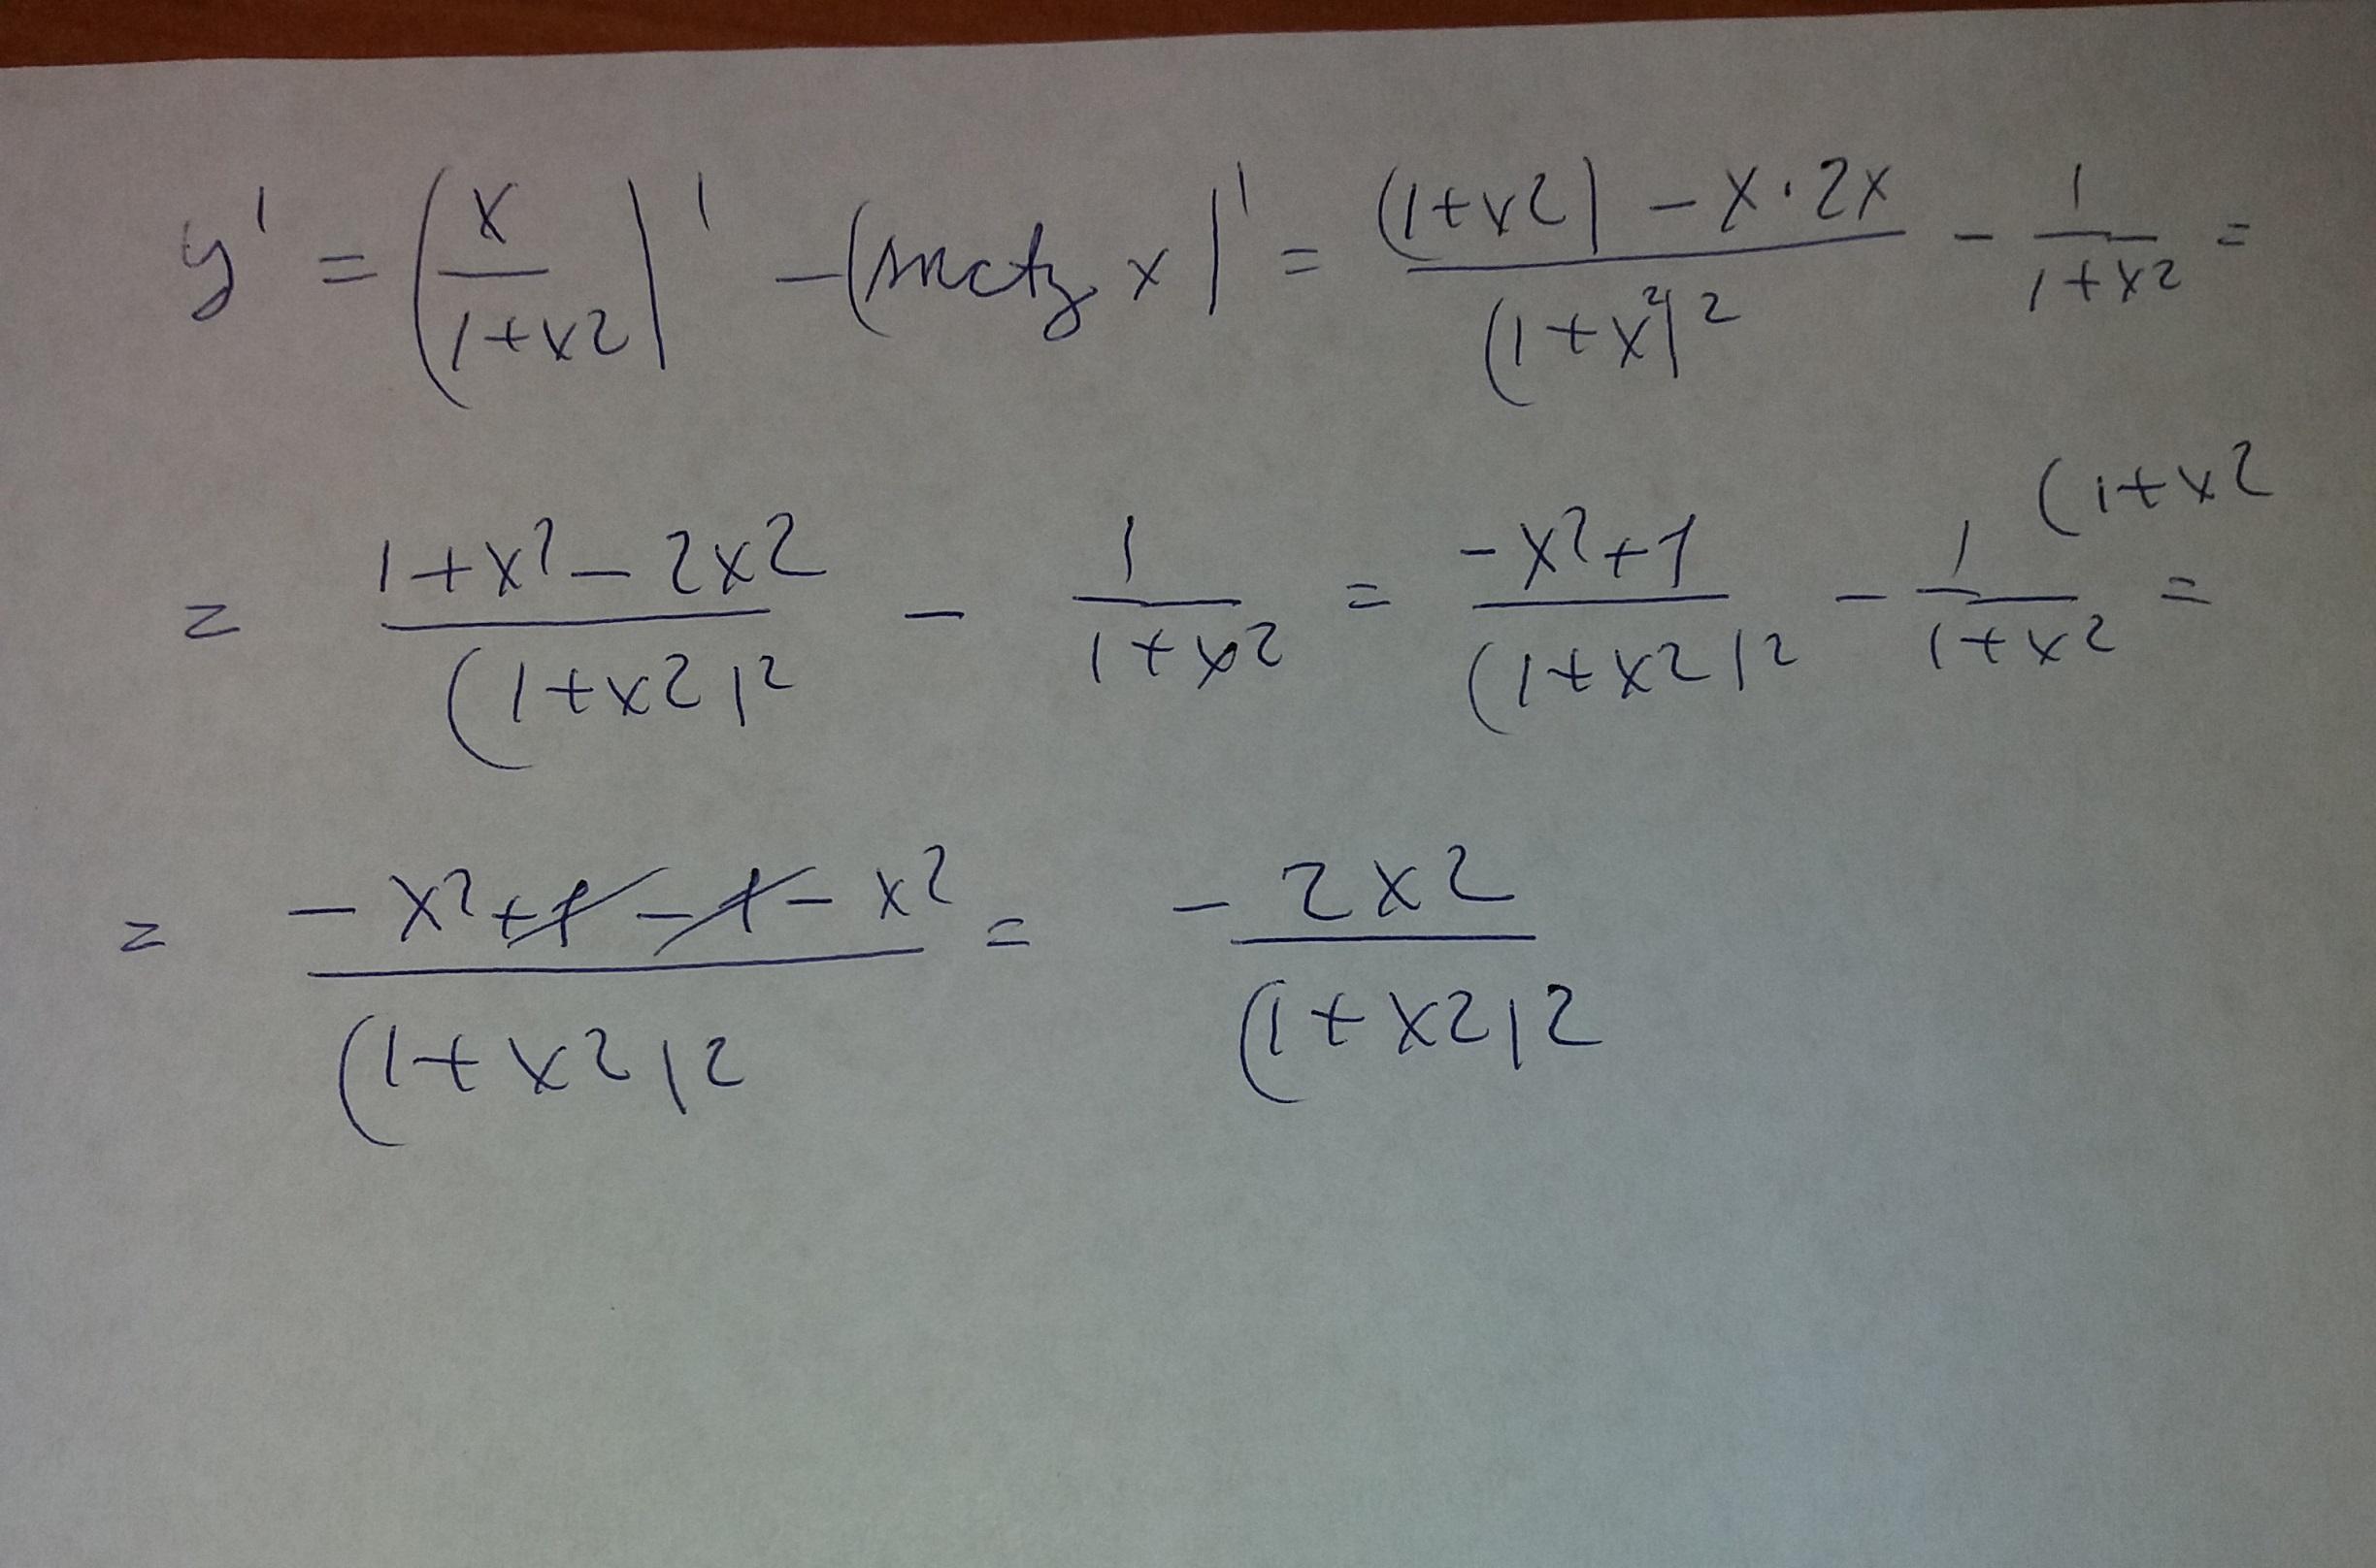 y' = (x/(1+x²))' - (arctg x)' = ((1+x²) - x·2x)/(1+x²)² - 1/(1+x²) =
= (1+x² - 2x²)/(1+x²)² - 1/(1+x²) = (-x²+1)/(1+x²)² - 1/(1+x²) (1+x² =
= (-x²+1-1-x²)/(1+x²)² = - 2x²/(1+x²)²